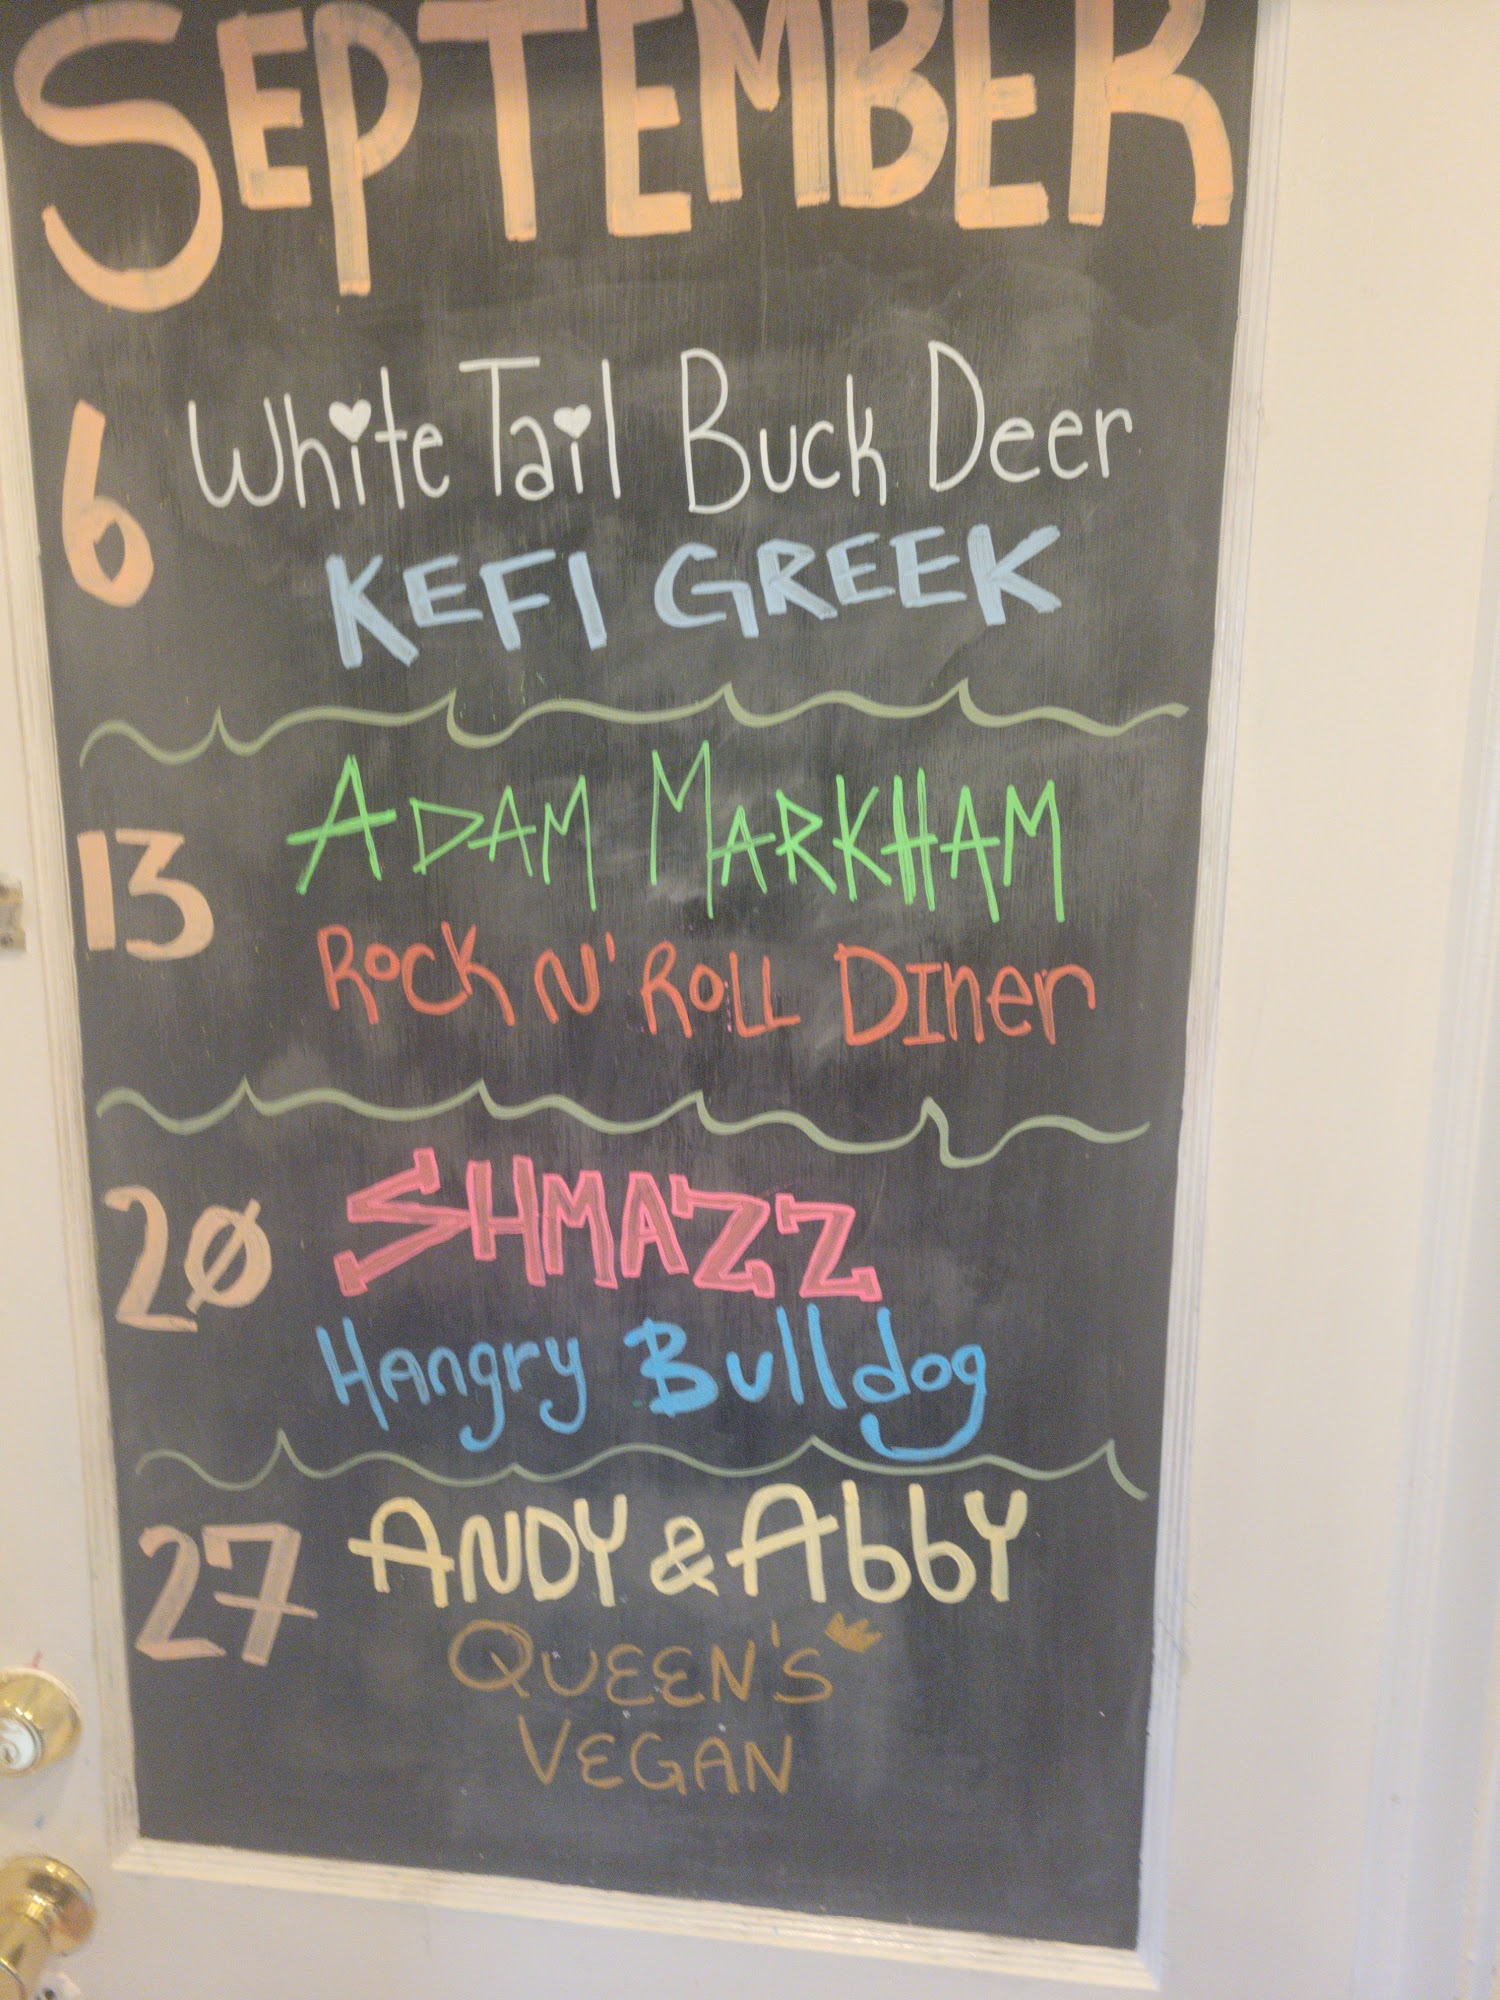 SEPTEMBER
6 White Tail Buck Deer
KEFI GREEK
13 ADAM MARKHAM
ROCK N' ROLL DINer
20 SHMAZZ
Hangry Bulldog
27 ANDY & AbbY
QUEEN'S
VEGAN